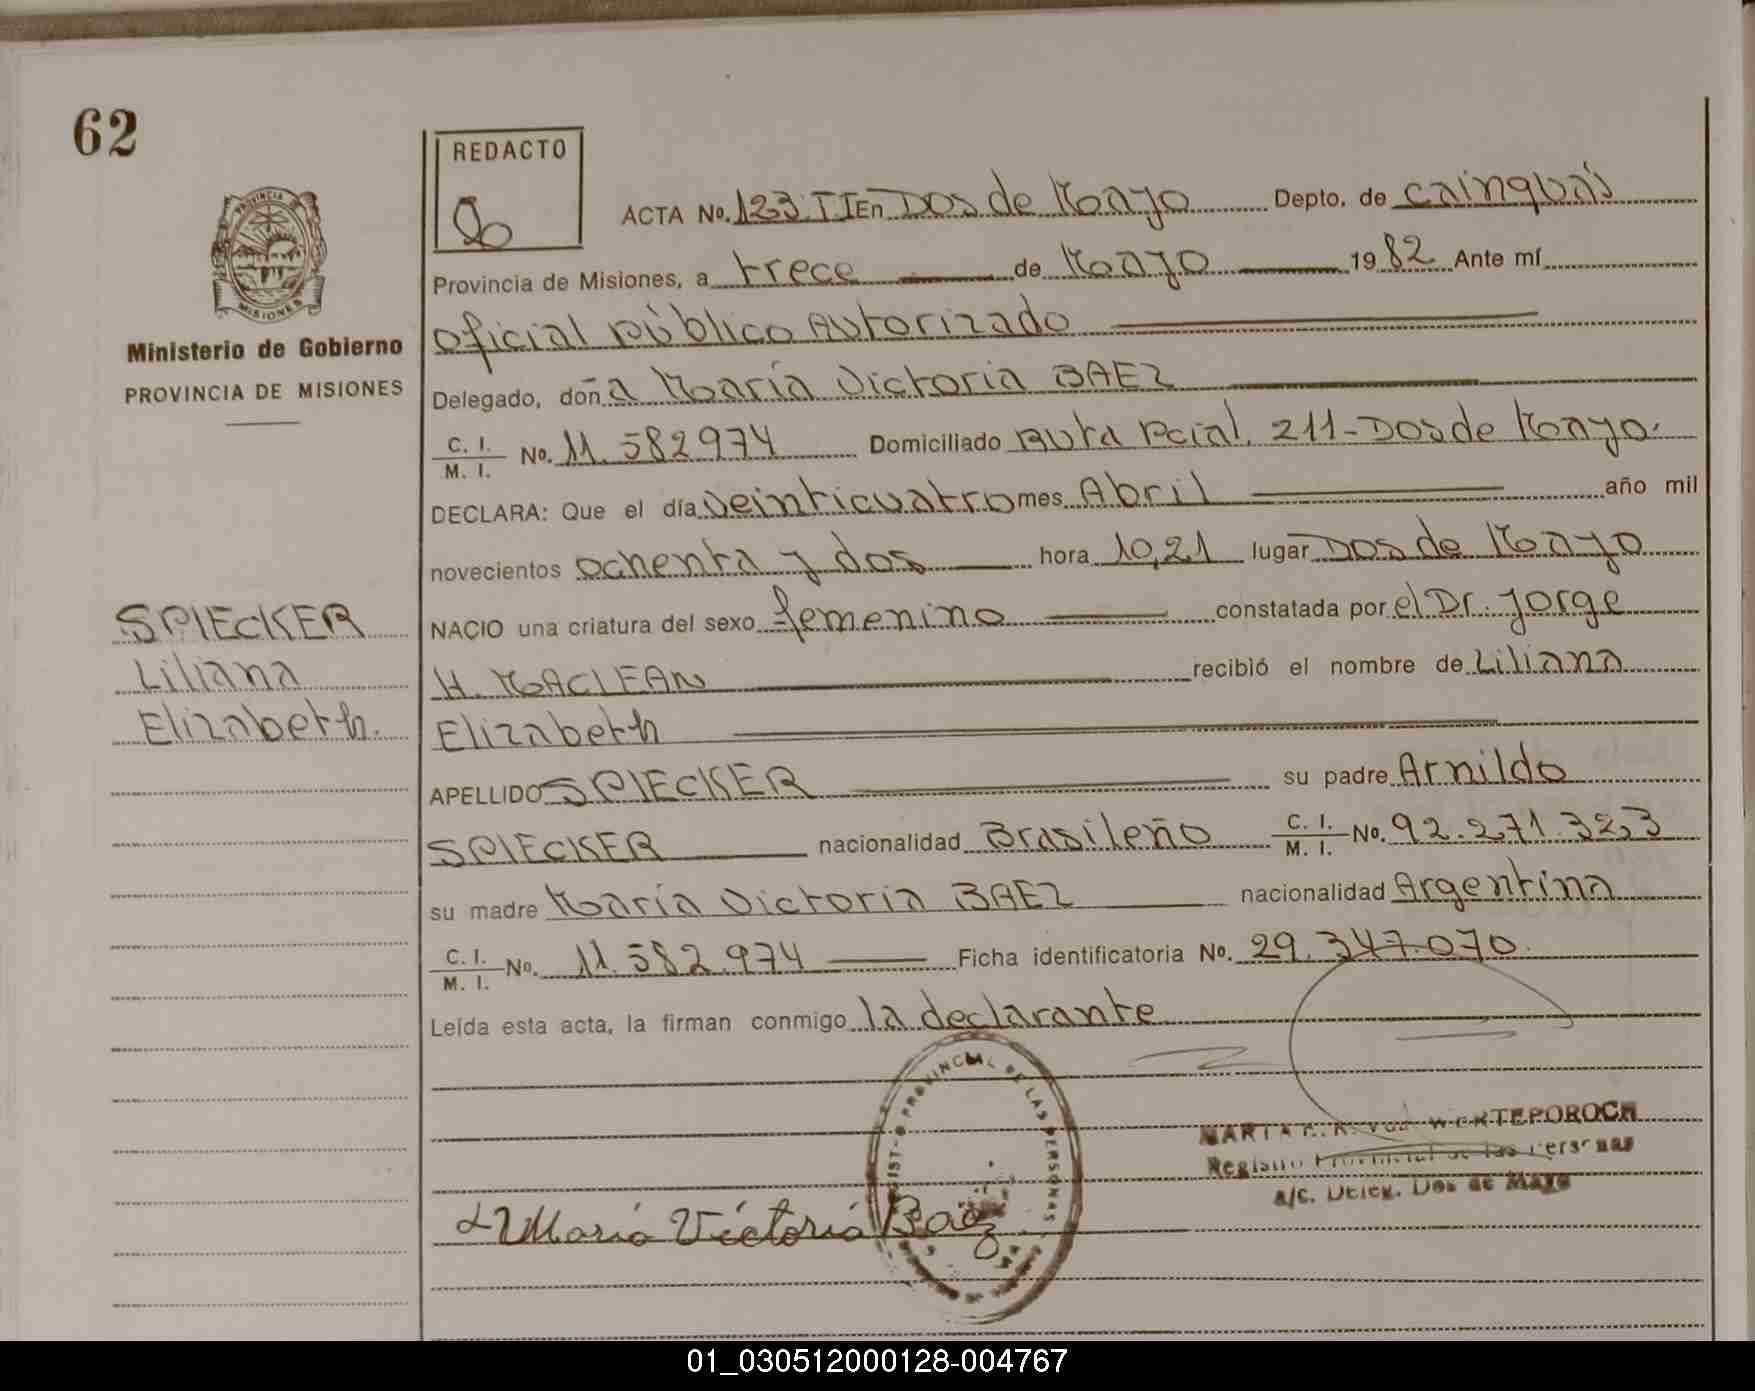 62
REDACTO
ACTA No. 123 TI En Dos de Mayo Depto. de Cainguás
Provincia de Misiones, a trece de Mayo 1982 Ante mí
Oficial Público Autorizado
Ministerio de Gobierno
PROVINCIA DE MISIONES
Delegado, doña María Victoria BAEZ
C. I. / M. I. No. 11.582974 Domiciliado Ruta Pcial. 211-Dos de Mayo.
DECLARA: Que el día veinticuatro mes Abril año mil
novecientos ochenta y dos hora 10,21 lugar Dos de Mayo
NACIO una criatura del sexo femenino constatada por el Dr. Jorge
H. MACLEAN recibió el nombre de Liliana
Elizabeth
SPIECKER
Liliana
Elizabeth.
APELLIDO SPIECKER su padre Arnildo
SPIECKER nacionalidad Brasileño C. I. / M. I. No. 92.271.323
su madre María Victoria BAEZ nacionalidad Argentina
C. I. / M. I. No. 11.582.974 Ficha identificatoria No. 29.347.070.
Leída esta acta, la firman conmigo la declarante
PROVINCIAL DE LAS PERSONAS
WERTEPOROCH
Registro Provincial de las Personas
a/c. Deleg. Dos de Mayo
María Victoria Baez
01_030512000128-004767